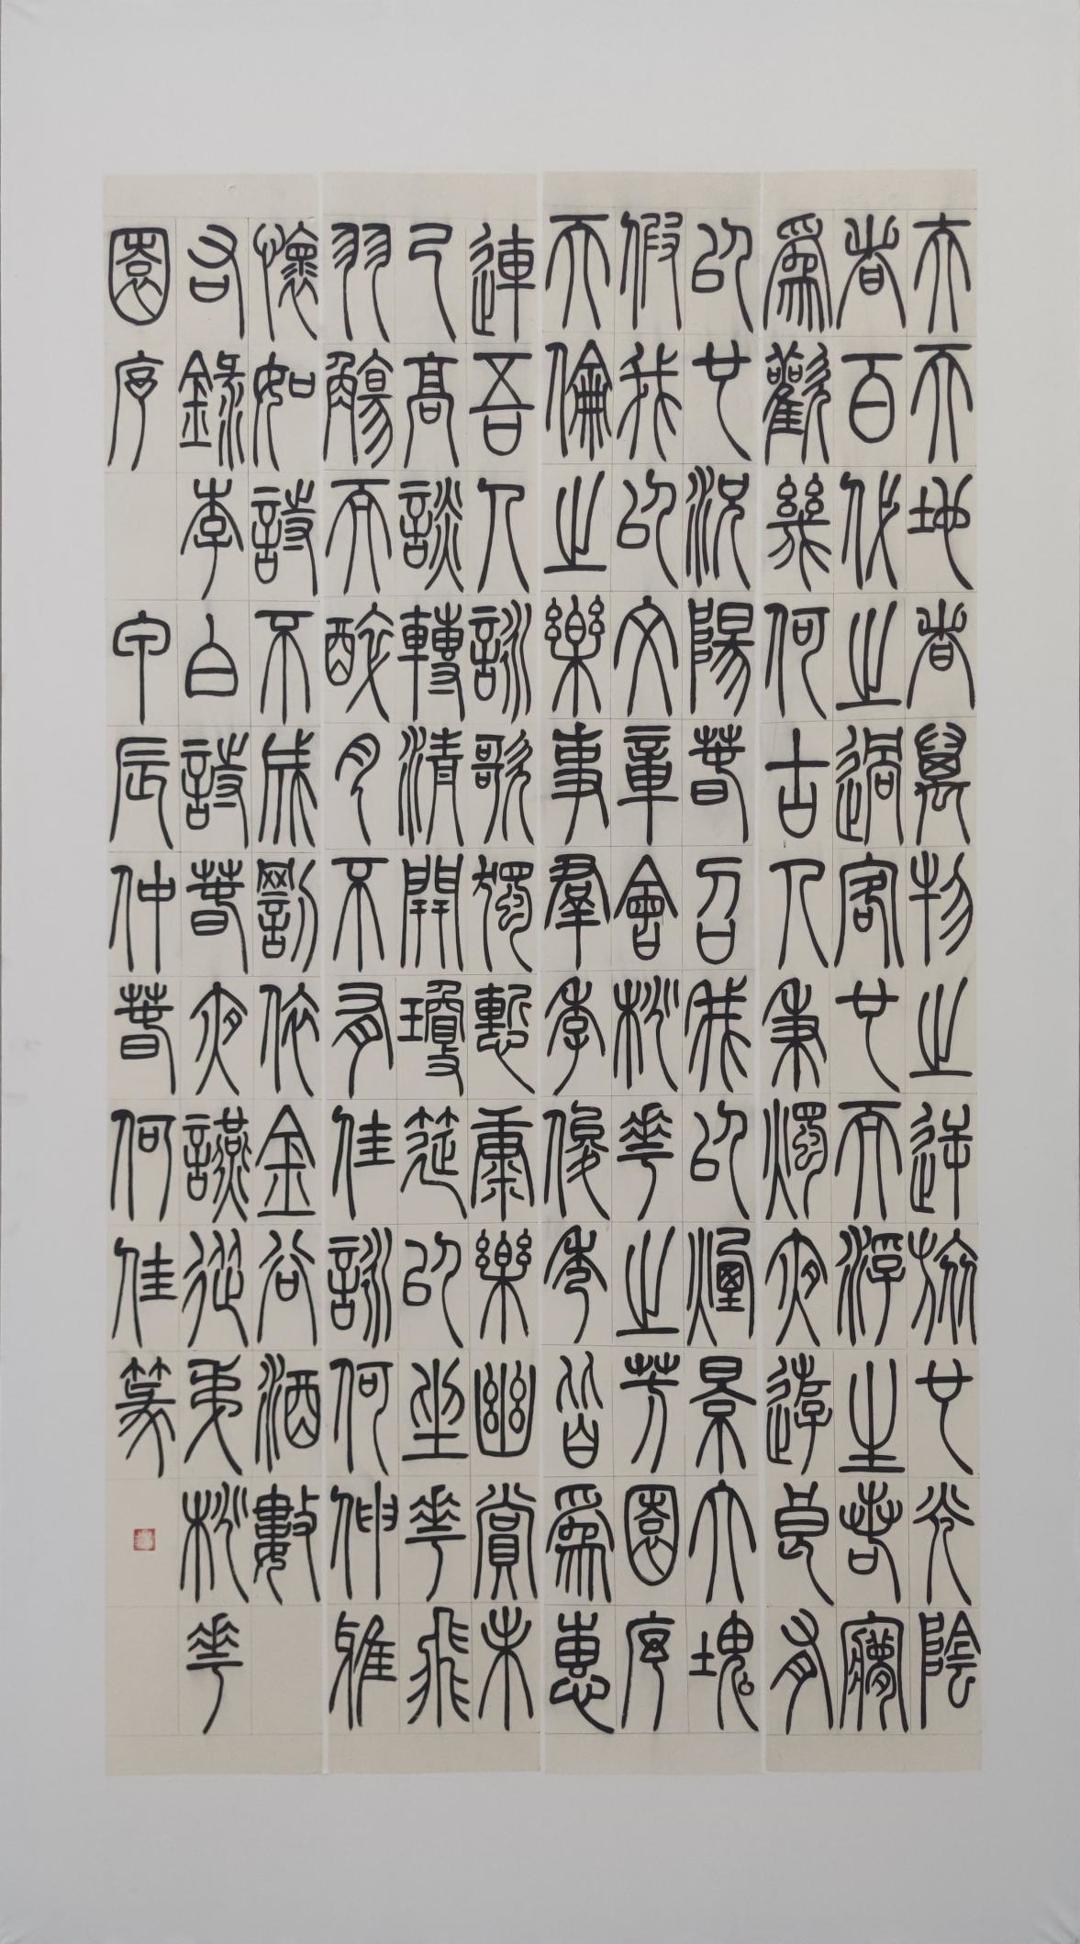 夫天地者萬物之逆旅也光陰
者百代之過客也而浮生若夢
爲歡幾何古人秉燭夜遊良有
以也況陽春召我以煙景大塊
假我以文章會桃花之芳園序
天倫之樂事羣季俊秀皆爲惠
連吾人詠歌獨慙康樂幽賞未
已高談轉清開瓊筵以坐花飛
羽觴而醉月不有佳詠何伸雅
懷如詩不成罰依金谷酒數
右錄李白詩春夜讌從弟桃花
園序 甲辰仲春何佳篆